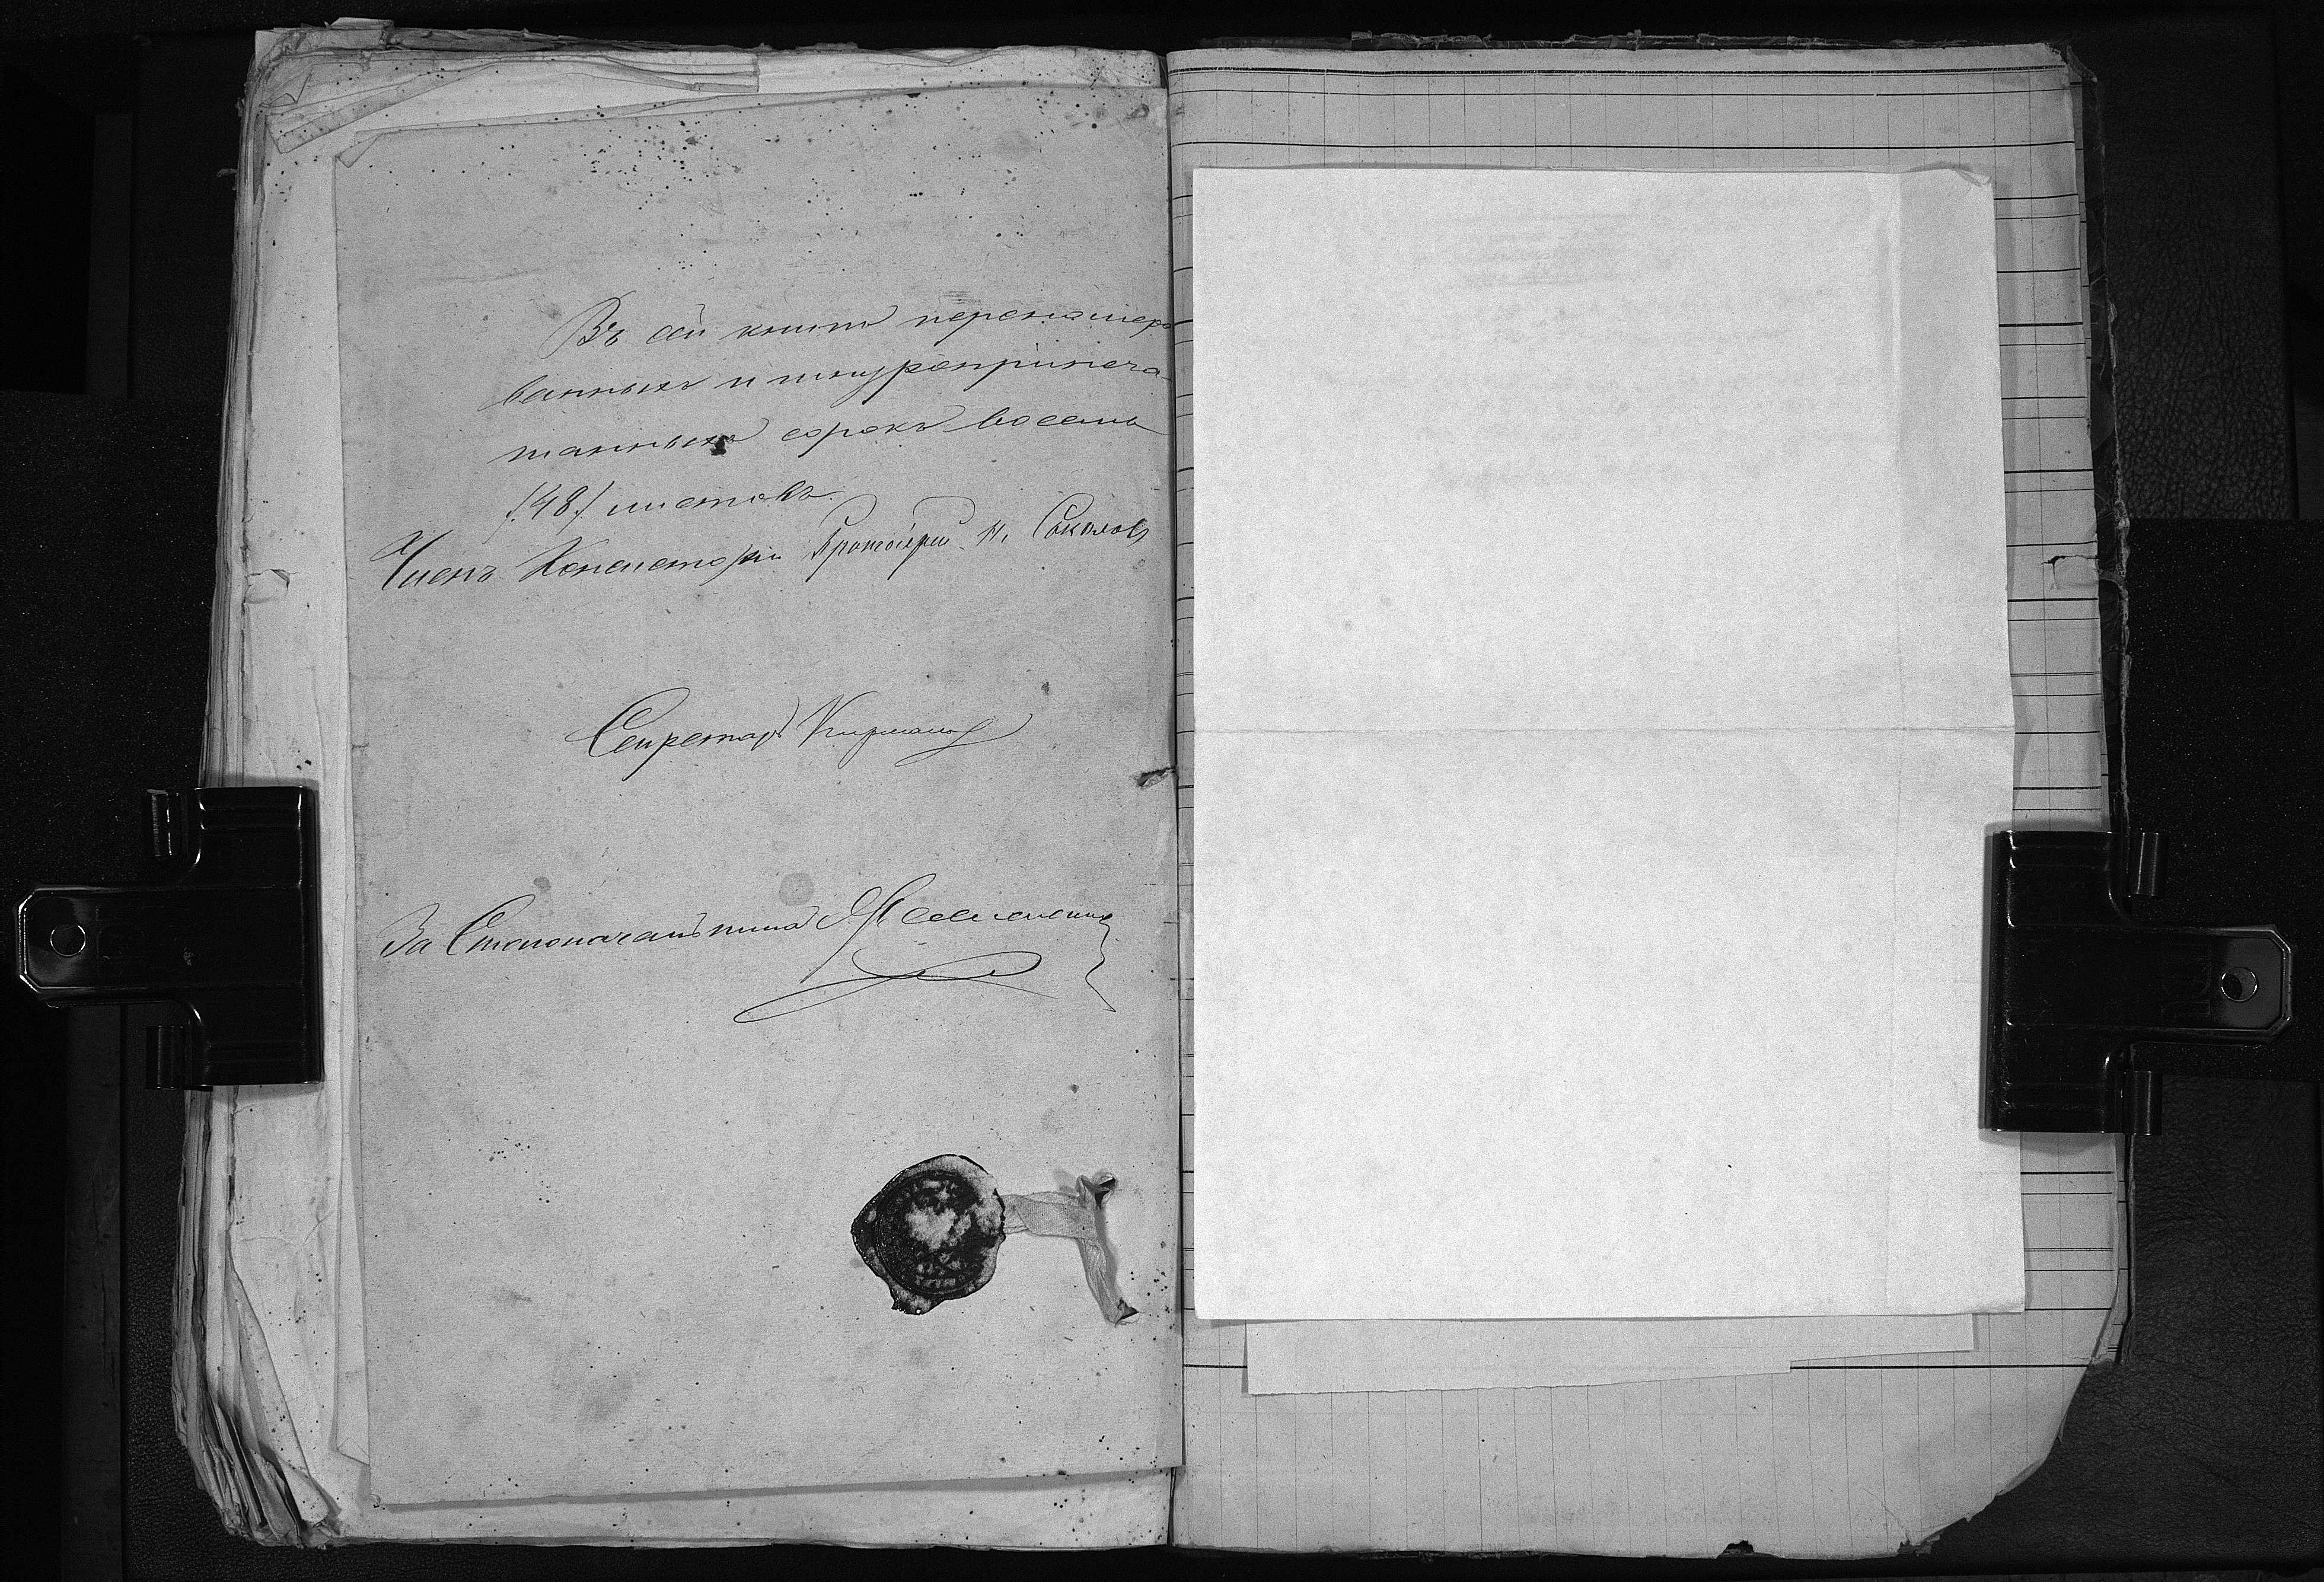 Въ сей книгѣ перенумеро
ванныхъ и шнуроприпеча-
танныхъ сорокъ восемь
/48/ листовъ.
Членъ Консисторіи Протоіерей Н. Соколовъ
Секретарь
За Столоначальника